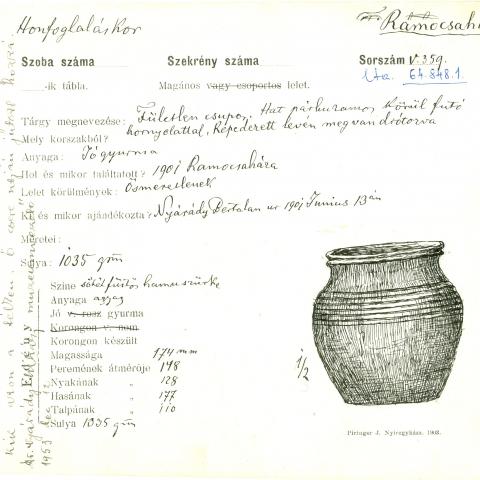 Honfoglaláskor
Ramocsaháza
Szoba száma
Szekrény száma
Sorszám V. 359.
-ik tábla.
Magános vagy csoportos lelet.
Lta. 64.848.1.
Tárgy megnevezése: Fületlen csupor, Hat párhuzamos körül futó
hornyolattal, Repedezett lévén megvan drótozva
Mely korszakból?
Anyaga: Jó gyurma
Hol és mikor találtatott? 1901 Ramocsaháza
Lelet körülmények: Ösmeretlenek
Ki és mikor ajándékozta? Nyárády Bertalan ur 1901 Junius 13 án
Méretei:
Sulya: 1035 gm
Szine sötétfüstös hamuszürke
Anyaga agyag
Jó v. rosz gyurma
Korongon v. nom
Korongon készült
Magassága 174 mm
Peremének átmérője 148
Nyakának „ 128
Hasának „ 177
Talpának „ 110
Sulya 1035 gm
1/2
Piringer J. Nyiregyháza, 1903.
Nyárády
1953